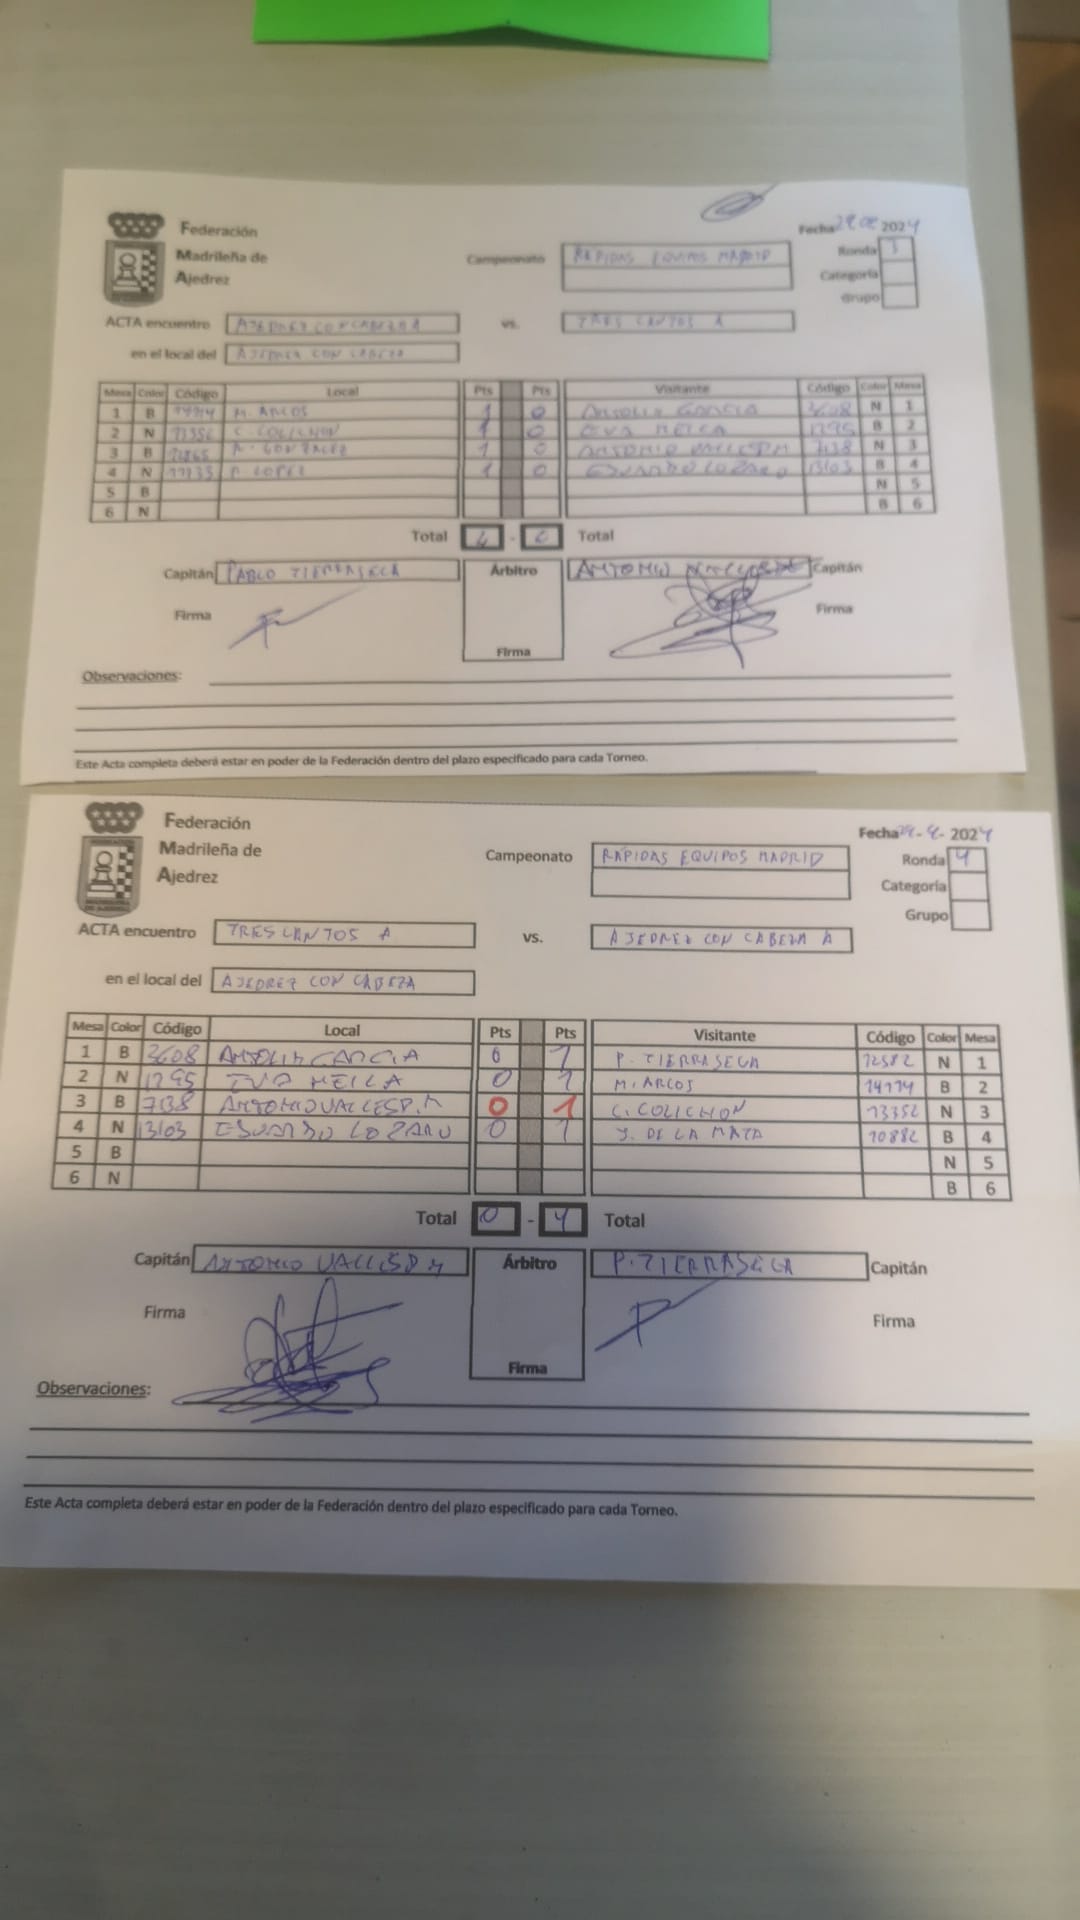 Federación
Madrileña de
Ajedrez
Fecha 2024
Campeonato RAPIDAS EQUIPOS MADRID
Ronda 3
Categoría
Grupo
ACTA encuentro AJEDREZ CON CABEZA A vs. TRES CANTOS A
en el local del AJEDREZ CON CABEZA
Mesa Color Código Local Pts Pts Visitante Código Color Mesa
1 B M. ARCOS 1 0 ANTOLIN GARCIA 3608 N 1
2 N 13352 C. COLICHON 1 0 EVA MEILA 1295 B 2
3 B A. GONZALEZ 1 0 ANTONIO VALLESP.M 7138 N 3
4 N P. LOPEZ 1 0 EDUARDO LOZANO 13103 B 4
5 B N 5
6 N B 6
Total 4 - 0 Total
Capitán PABLO TIERRASECA Árbitro ANTONIO Capitán
Firma Firma
Firma
Observaciones:
Este Acta completa deberá estar en poder de la Federación dentro del plazo especificado para cada Torneo.
Federación
Madrileña de
Ajedrez
Fecha 2024
Campeonato RÁPIDAS EQUIPOS MADRID
Ronda 4
Categoría
Grupo
ACTA encuentro TRES CANTOS A vs. AJEDREZ CON CABEZA A
en el local del AJEDREZ CON CABEZA
Mesa Color Código Local Pts Pts Visitante Código Color Mesa
1 B 3608 ANTOLIN GARCIA 0 1 P. TIERRASECA 12582 N 1
2 N 1295 EVA MEILA 0 1 M. ARCOS 14114 B 2
3 B 7138 ANTONIO VALLESP.M 0 1 C. COLICHON 13352 N 3
4 N 13103 EDUARDO LOZANO 0 1 J. DE LA MATA 10882 B 4
5 B N 5
6 N B 6
Total 0 - 4 Total
Capitán ANTONIO VALLESP M Árbitro P. TIERRASECA Capitán
Firma Firma
Firma
Observaciones:
Este Acta completa deberá estar en poder de la Federación dentro del plazo especificado para cada Torneo.